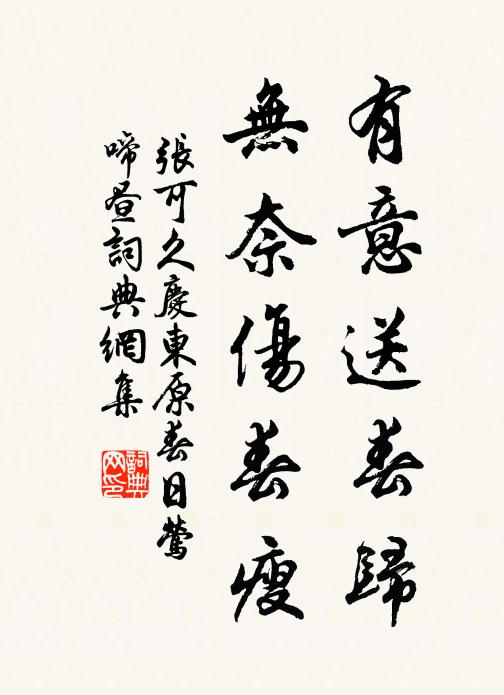 有意送春歸
無奈傷春瘦
張可久慶東原春日鶯
啼晝詞典網集
詞典
网印